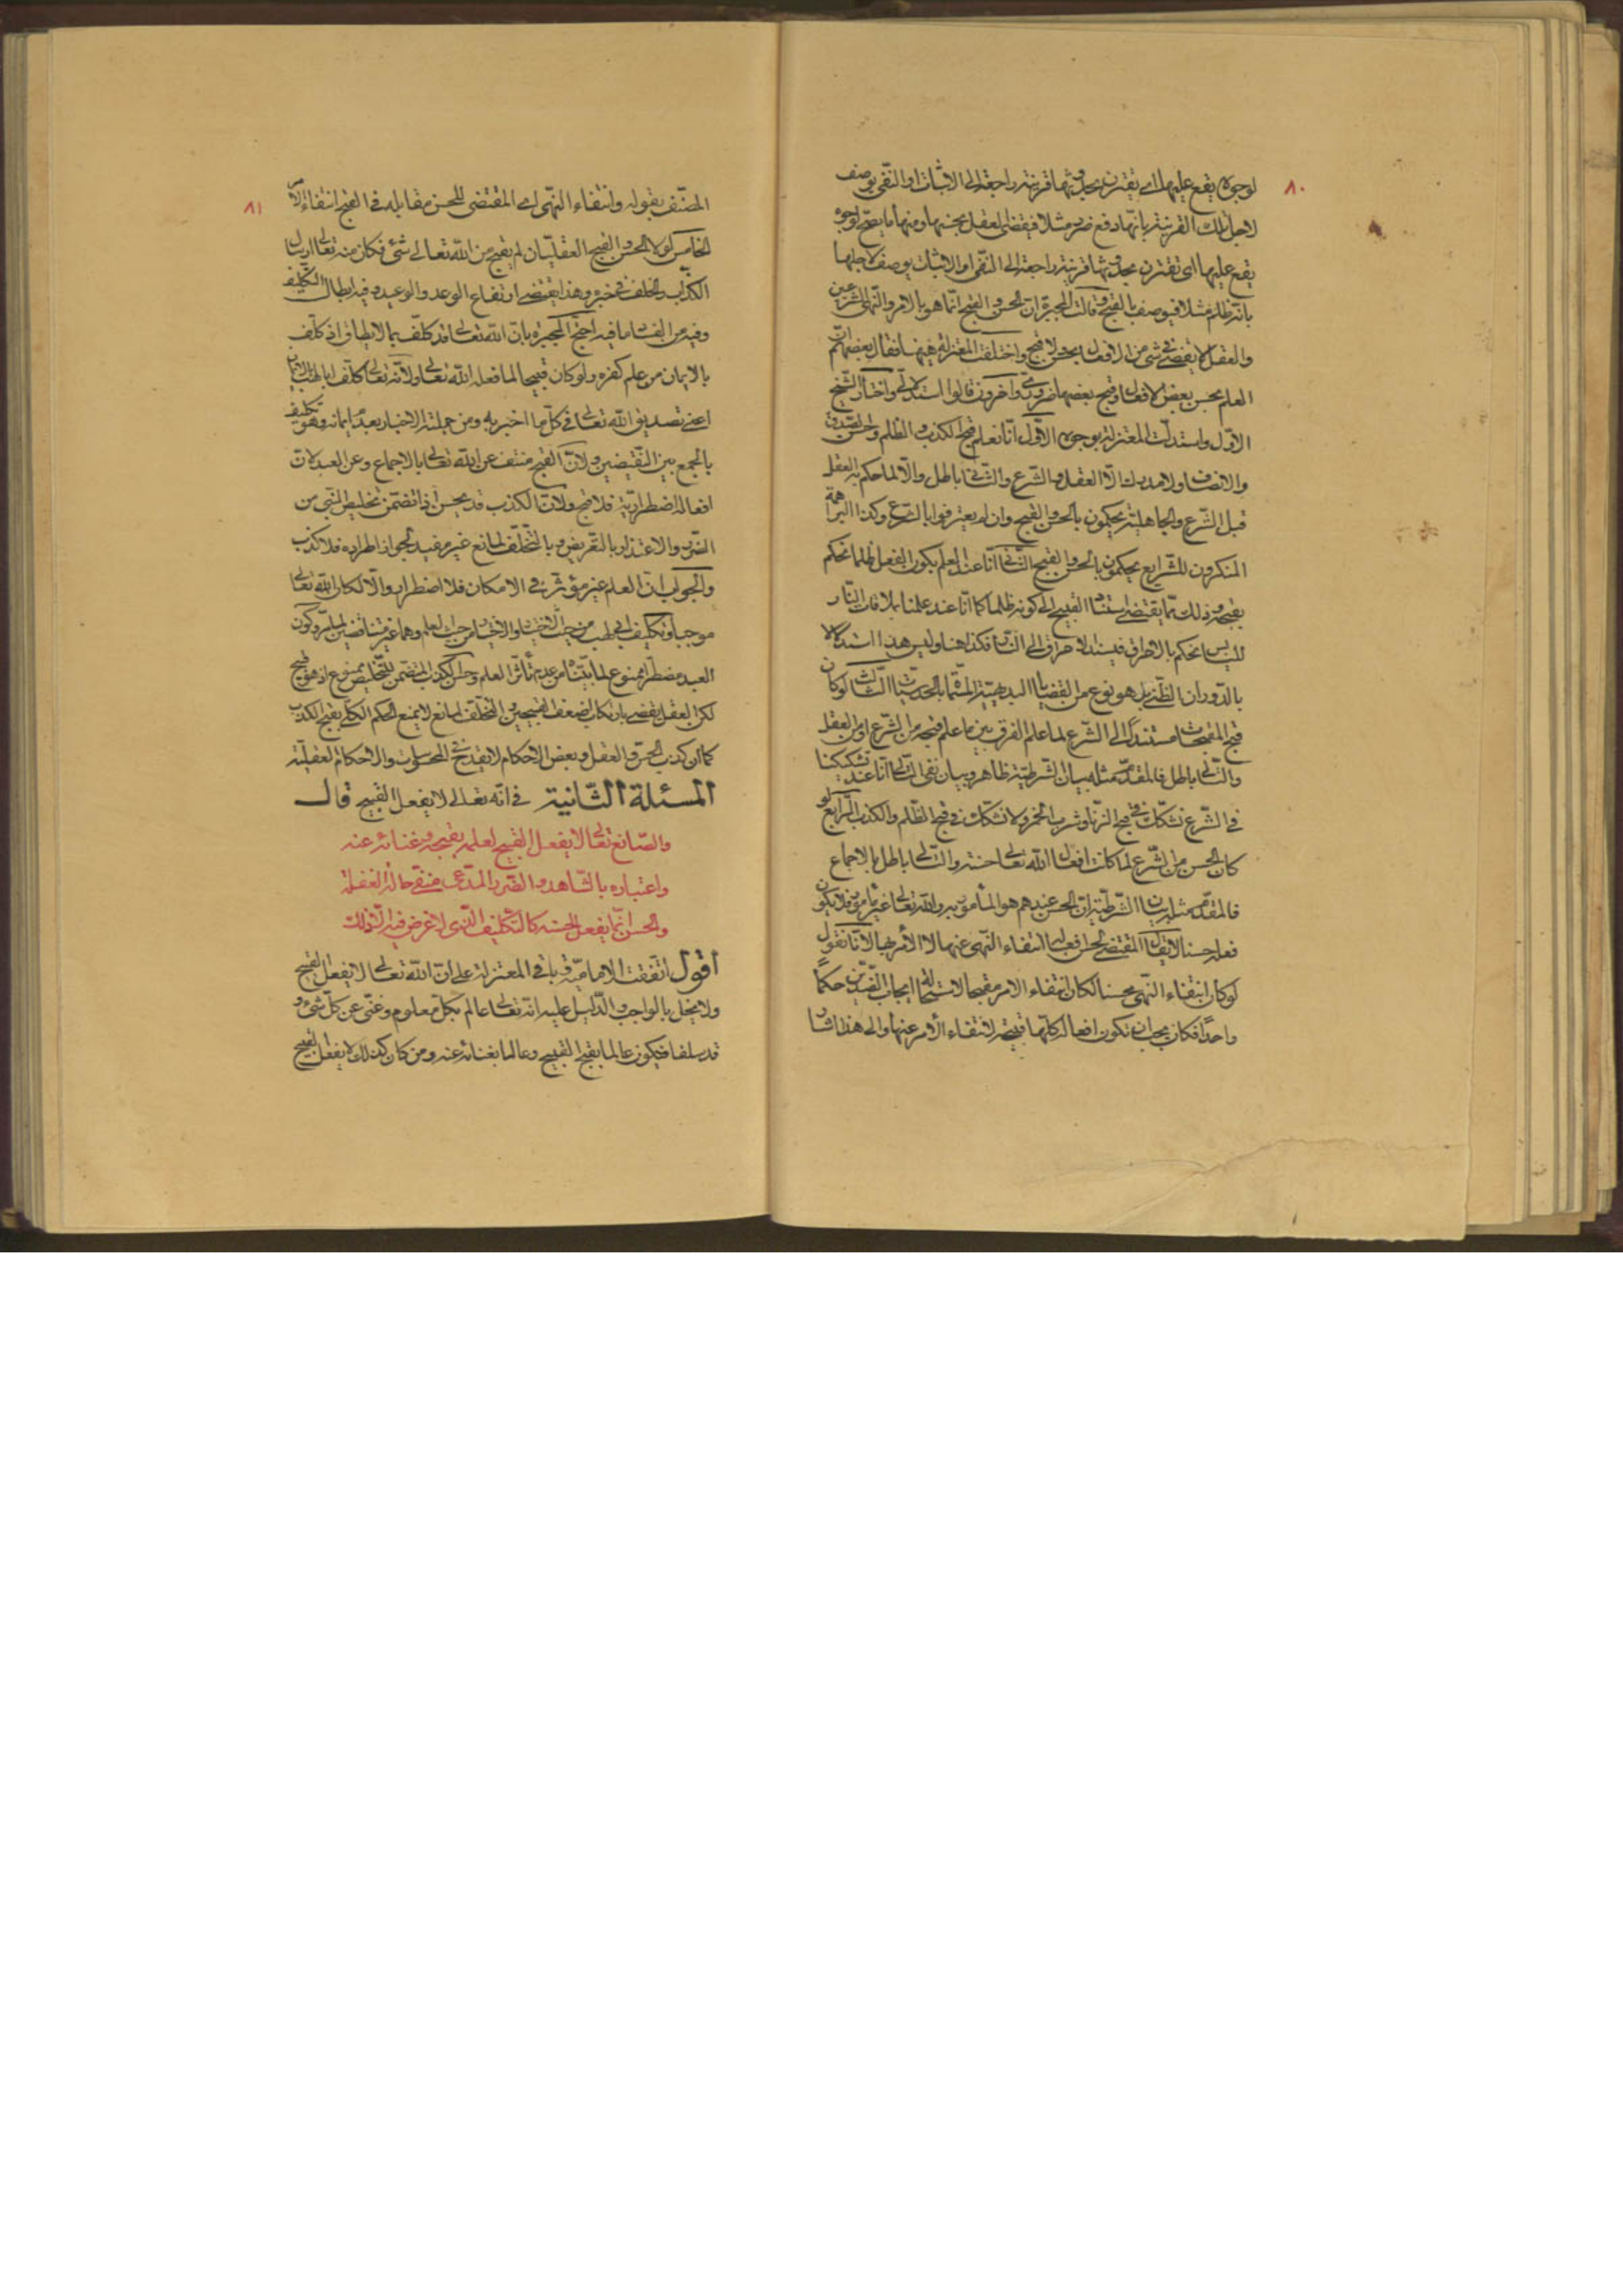 ٨٠
لوجوه يقع عليها اي يقترن بحدوثها قرينة راجعة الى الاثبات او النفى يوصف
لاجل تلك القرينة بانها دفع ضرر مثلا فيقضى العقل بحسنها ومنها ما يقبح لوجوه
يقع عليها اى تقترن بحدوثها قرينة راجعة الى النفى او الاثبات يوصف لاجلها
بانه ظلم مثلا فيوصف بالقبح وقالت المجبرة ان الحسن والقبح انما هو بالامر والنهى الشرعيين
والعقل لا يقضى فى شئ من الافعال بحسن ولا قبح واختلفت المعتزلة هيهنا فقال بعضهم ان
العلم بحسن بعض الافعال وقبح بعضها ضرورى وآخرون قالوا استدلالى واختار الشيخ
الاول واستدلت المعتزلة بوجوه الاول انا نعلم قبح الكذب والظلم وحسن الصدق
والانصاف ولا مدرك الا العقل والشرع والثانى باطل والا لما حكم به العقل
قبل الشرع والجاهلية يحكمون بالحسن والقبح وان لم يعترفوا بالشرع وكذا البراهمة
المنكرون للشرايع يحكمون بالحسن والقبح الثانى انا عند العلم بكون الفعل ظلما نحكم
بقبحه وذلك مما يقتضى استناد القبح الى كونه ظلما كما انا عند علمنا بملاقات النار
لليابس نحكم بالاحراق فيستند الاحراق الى النار فكذا هنا وليس هذا استدلالا
بالدوران الظنى بل هو نوع من القضايا البديهية المسماة بالحدسيات الثالث لو كان
قبح المقبحات مستندا الى الشرع لما علم الفرق بين ما علم قبحه من الشرع او من العقل
والتالى باطل فالمقدم مثله بيان الشرطية ظاهر وبيان نفى التالى انا عند تشكيكنا
فى الشرع نشكك فى قبح الزنا وشرب الخمر ولا نشكك فى قبح الظلم والكذب الرابع لو
كان الحسن من الشرع لما كانت افعال الله تعالى حسنة والتالى باطل بالاجماع
فالمقدم مثله بيان الشرطية ان الحسن عندهم هو المأمور به والله تعالى غير مأمور فلا يكون
فعله حسنا لا يقال المقتضى لحسن افعاله انتفاء النهى عنها لا الأمر بها لانا نقول
لو كان انتفاء النهى محسنا لكان انتفاء الامر مقبحا لاستحالة ايجاب الضدين حكمًا
واحدًا فكان يجب ان تكون افعاله كلها قبيحة لانتفاء الأمر عنها والى هذا اشار
٨١
المصنف بقوله وانتفاء النهى اى المقتضى للحسن مقابله فى القبح انتفاء الأمر
الخامس لولا الحسن والقبح العقليان لم يقبح من الله تعالى شئ فكان منه تعالى ارسال
الكذاب والخلف فى خبره وهذا يقتضى ارتفاع الوعد والوعيد وفيه ابطال التكليف
وفيه من الفساد ما فيه احتج المجبرة بان الله تعالى قد كلف بما لا يطاق اذ كلف
بالايمان من علم كفره ولو كان قبيحا لما فعله الله تعالى ولانه تعالى كلف ابا لهب بالايمان
اعنى تصديق الله تعالى فى كل ما اخبر به ومن جملته الاخبار بعدم ايمانه وهو تكليف
بالجمع بين النقيضين ولان القبح منتف عن الله تعالى بالاجماع وعن العبد لان
افعاله اضطرارية فلا قبح ولان الكذب قد يحسن اذا تضمن تخليص النبى من
الضرب والاعتذار بالتعريض وبالتخلف لمانع غير مفيد لجواز اطراده فلا كذب
والجواب ان العلم غير مؤثر فى الامكان فلا اضطرار والا لكان الله تعالى
موجبا وتكليف ابى لهب من حيث الاختيار والاخبار من حيث العلم وهما غير متناقضين لما مر وكون
العبد مضطرا ممنوع لما بيناه من عدم تأثر العلم وحسن الكذب المتضمن للتخليص ممنوع اذ هو قبيح
لكن العقل يقضى بارتكاب اضعف القبيحين والتخلف لمانع لا يمنع الحكم الكلى بقبح الكذب
كما ان كذب الحس والعقل فى بعض الاحكام لا يقدح فى المحسوسات والاحكام العقلية
المسئلة الثانية فى انه تعالى لا يفعل القبيح قال
والصانع تعالى لا يفعل القبيح لعلمه بقبحه وغنائه عنه
واعتباره بالشاهد والضرر المدعى منتف حالة الغفلة
والحسن انما يفعل لحسنه كالتكليف الذى لا غرض فيه الا ذلك
أقول اتفقت الامامية وباقى المعتزلة على ان الله تعالى لا يفعل القبيح
ولا يخل بالواجب والدليل عليه انه تعالى عالم بكل معلوم وغنى عن كل شئ و
قد سلفا فيكون عالما بقبح القبيح وعالما بغنائه عنه ومن كان كذلك لا يفعل القبيح